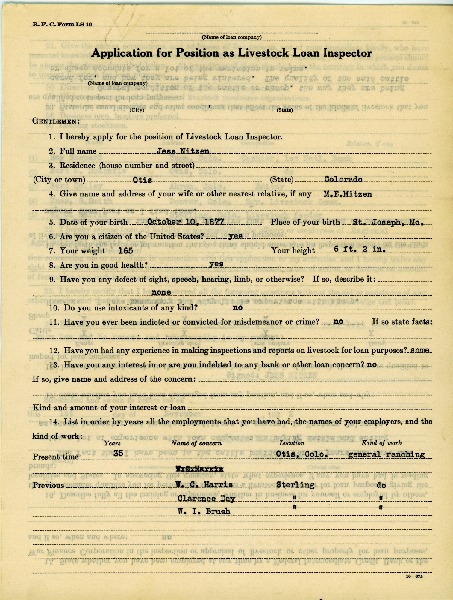 R. F. C. Form LS 10
(Name of loan company)
Application for Position as Livestock Loan Inspector
(Name of loan company)
(City) (State)
GENTLEMEN:
1. I hereby apply for the position of Livestock Loan Inspector.
2. Full name Jess Nitzen
3. Residence (house number and street)
(City or town) Otis (State) Colorado
4. Give name and address of your wife or other nearest relative, if any M.E.Mitzen
5. Date of your birth October 10, 1877 Place of your birth St. Joseph, Mo.
6. Are you a citizen of the United States? yes
7. Your weight 165 Your height 6 ft. 2 in.
8. Are you in good health? yes
9. Have you any defect of sight, speech, hearing, limb, or otherwise? If so, describe it:
none
10. Do you use intoxicants of any kind? no
11. Have you ever been indicted or convicted for misdemeanor or crime? no If so state facts:
12. Have you had any experience in making inspections and reports on livestock for loan purposes? some.
13. Have you any interest in or are you indebted to any bank or other loan concern? no
If so, give name and address of the concern:
Kind and amount of your interest or loan
14. List in order by years all the employments that you have had, the names of your employers, and the
kind of work:
Years Name of concern Location Kind of work
Present time 35 Otis, Colo. general ranching
Previous W. C. Harris Sterling do
Clarence Day " "
W. I. Brush " "